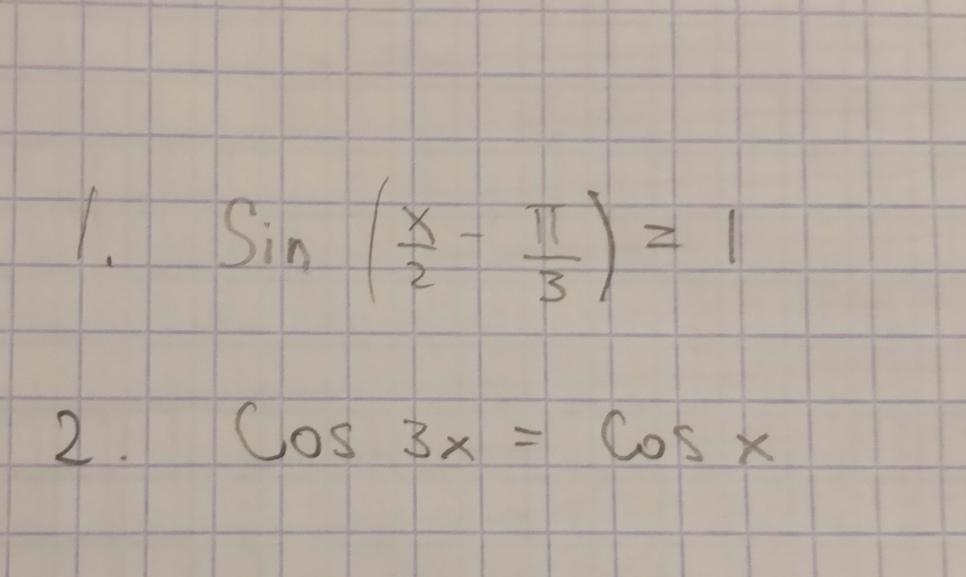 1. Sin (x/2 - π/3) = 1
2. Cos 3x = Cos x